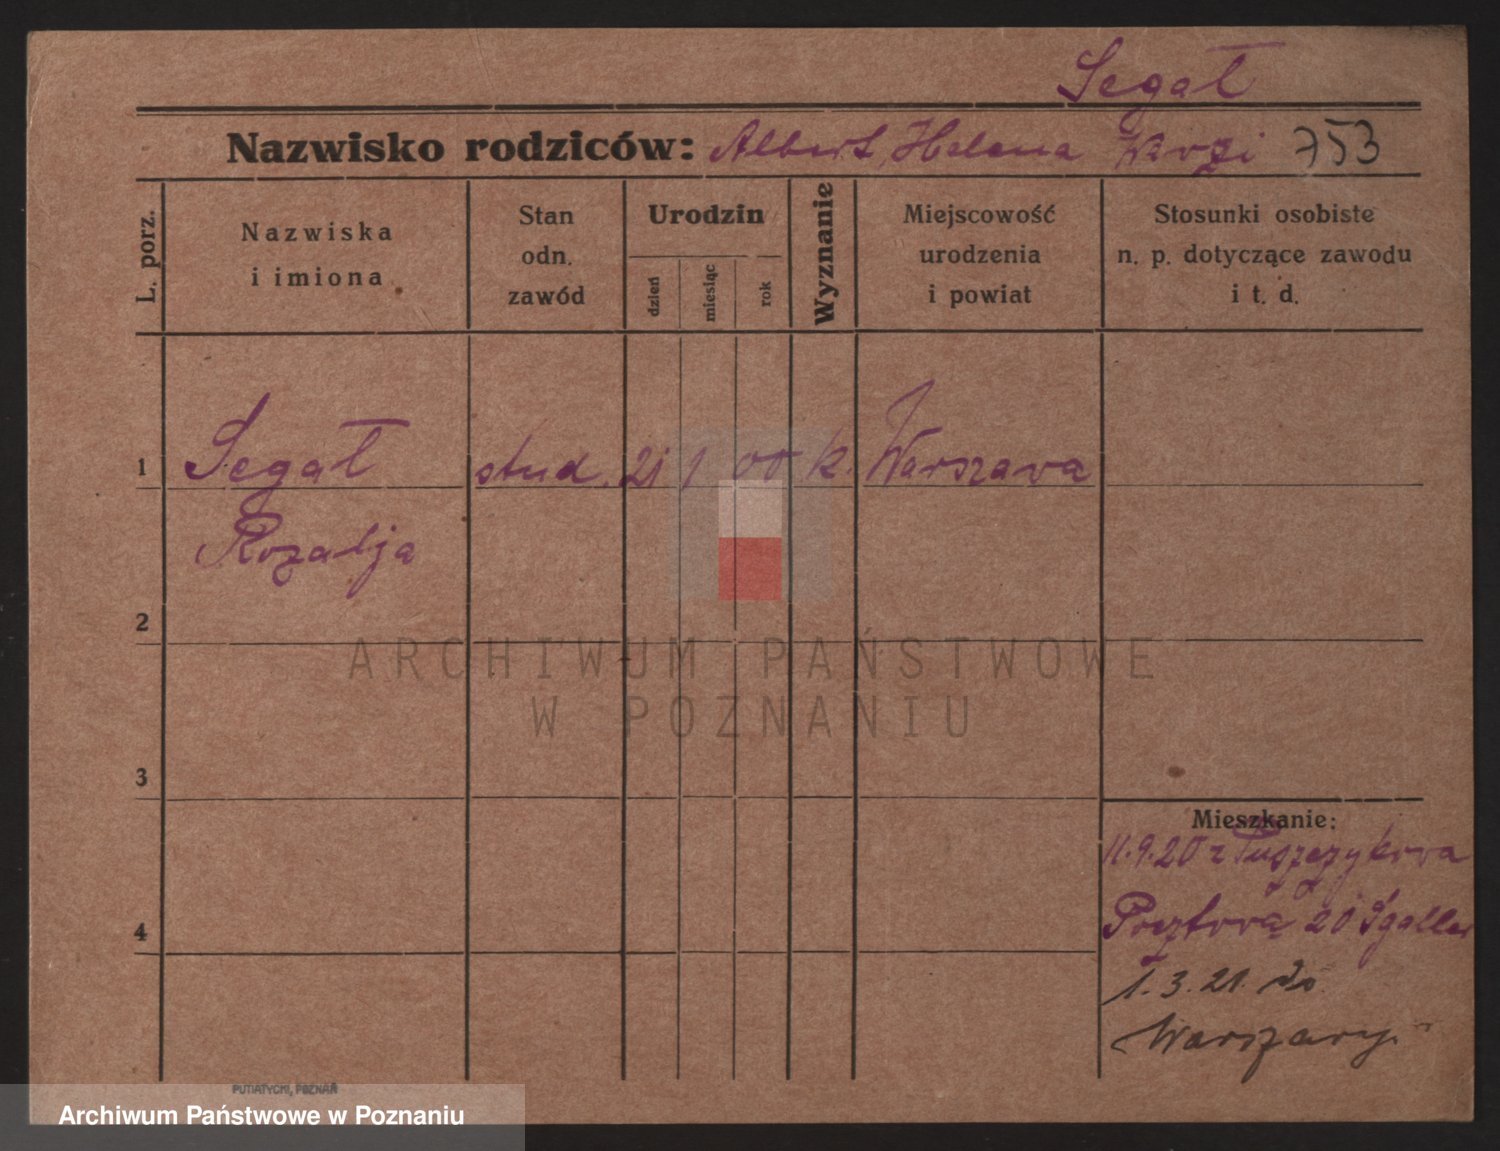 Segał
Nazwisko rodziców: Albert, Helena 753
L. porz.
Nazwiska
i imiona
Stan
odn.
zawód
Urodzin
dzień
miesiąc
rok
Wyznanie
Miejscowość
urodzenia
i powiat
Stosunki osobiste
n. p. dotyczące zawodu
i t. d.
1 Segał stud. 21 1 00 k. Warszawa
Rozalja
2
ARCHIWUM PAŃSTWOWE
W POZNANIU
3
Mieszkanie:
11.9.20 z Puszczykowa
4
Pocztowa 20
1.3.21. do
Warszawy.
PUTIATYCKI, POZNAŃ
Archiwum Państwowe w Poznaniu